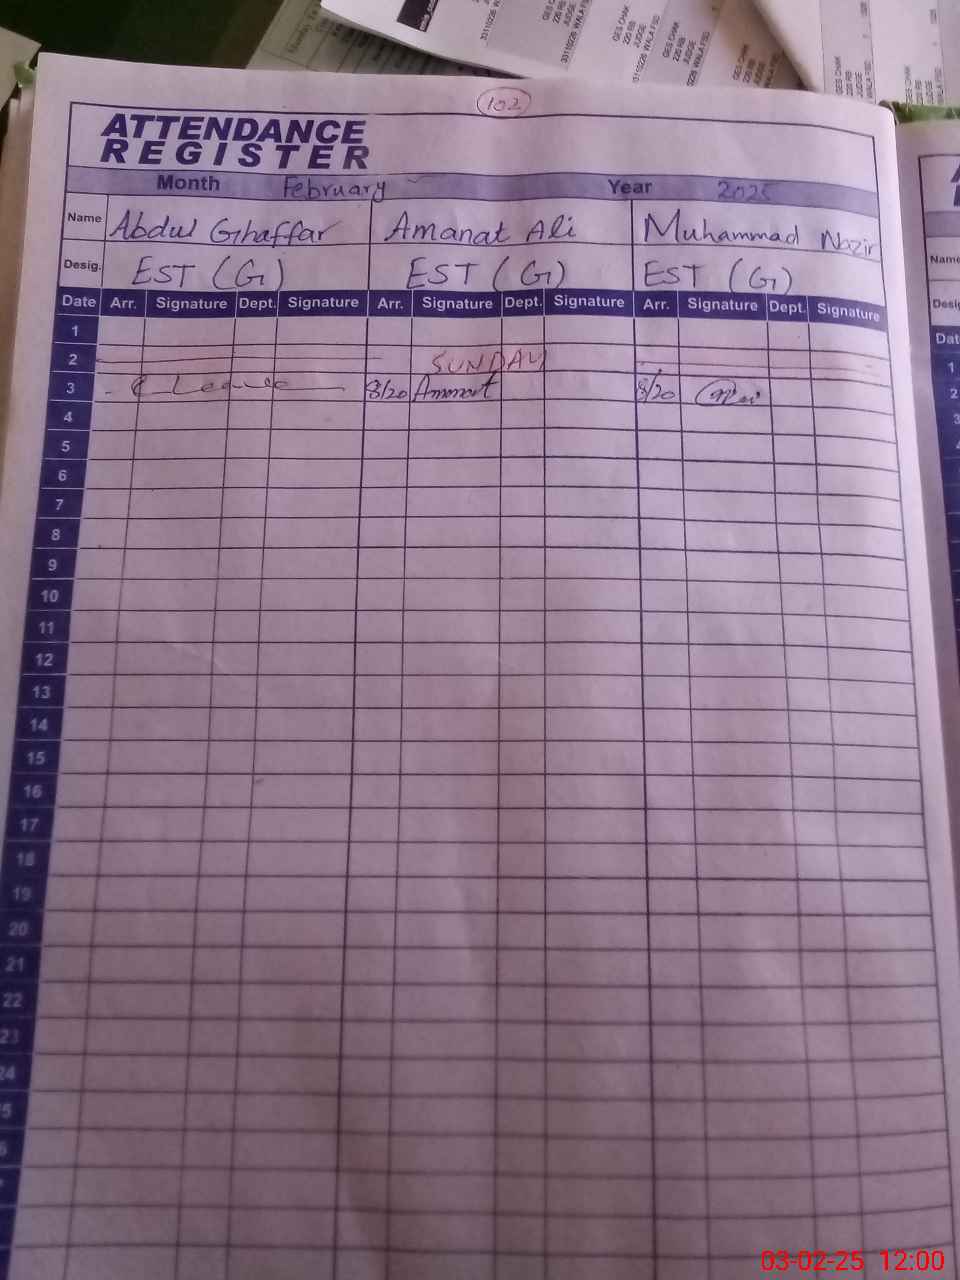 GES CHAK
220 RB
JUDGE
WALA FSD
33110226
102
ATTENDANCE
REGISTER
Month February Year 2025
Name Abdul Ghaffar Amanat Ali Muhammad Nazir
Desig. EST (G) EST (G) EST (G)
Date Arr. Signature Dept. Signature Arr. Signature Dept. Signature Arr. Signature Dept. Signature
1
2 SUNDAY
3 C Leave 8/20 Amanat 8/20
4
5
6
7
8
9
10
11
12
13
14
15
16
17
18
19
20
21
22
23
24
Name
Dat
1
2
3
03-02-25 12:00